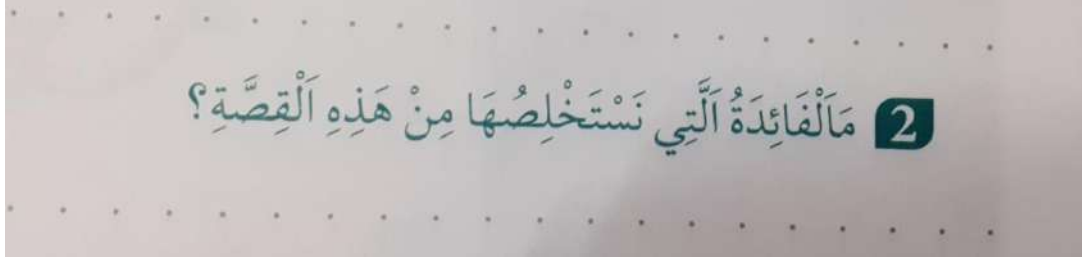 2 مَالْفَائِدَةُ اَلَّتِي نَسْتَخْلِصُهَا مِنْ هَذِهِ اَلْقِصَّةِ؟